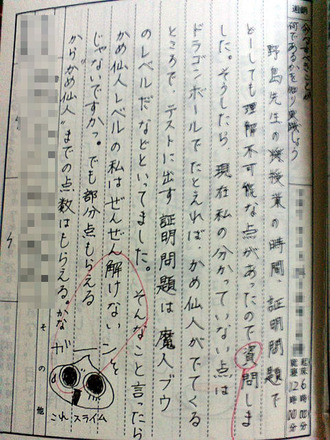 週朝
今すべきことは
何であるかを知り実践しよう
起床 6時00分
就寝 12時00分
野島先生の授業の時間、証明問題で
どーしても理解不可能な点があったので質問しま
した。そうしたら、現在私の分かっていない点は
ドラゴンボールでたとえれば、かめ仙人がでてくる
ところで、テストに出す証明問題は魔人ブウ
のレベルだなどといってました。そんなこと言ったら
かめ仙人レベルの私はぜんぜん解けないンと
じゃないですかっ。でも部分点もらえる
からかめ仙人までの点数はもらえる。かな
ガーン
その他
これスライム